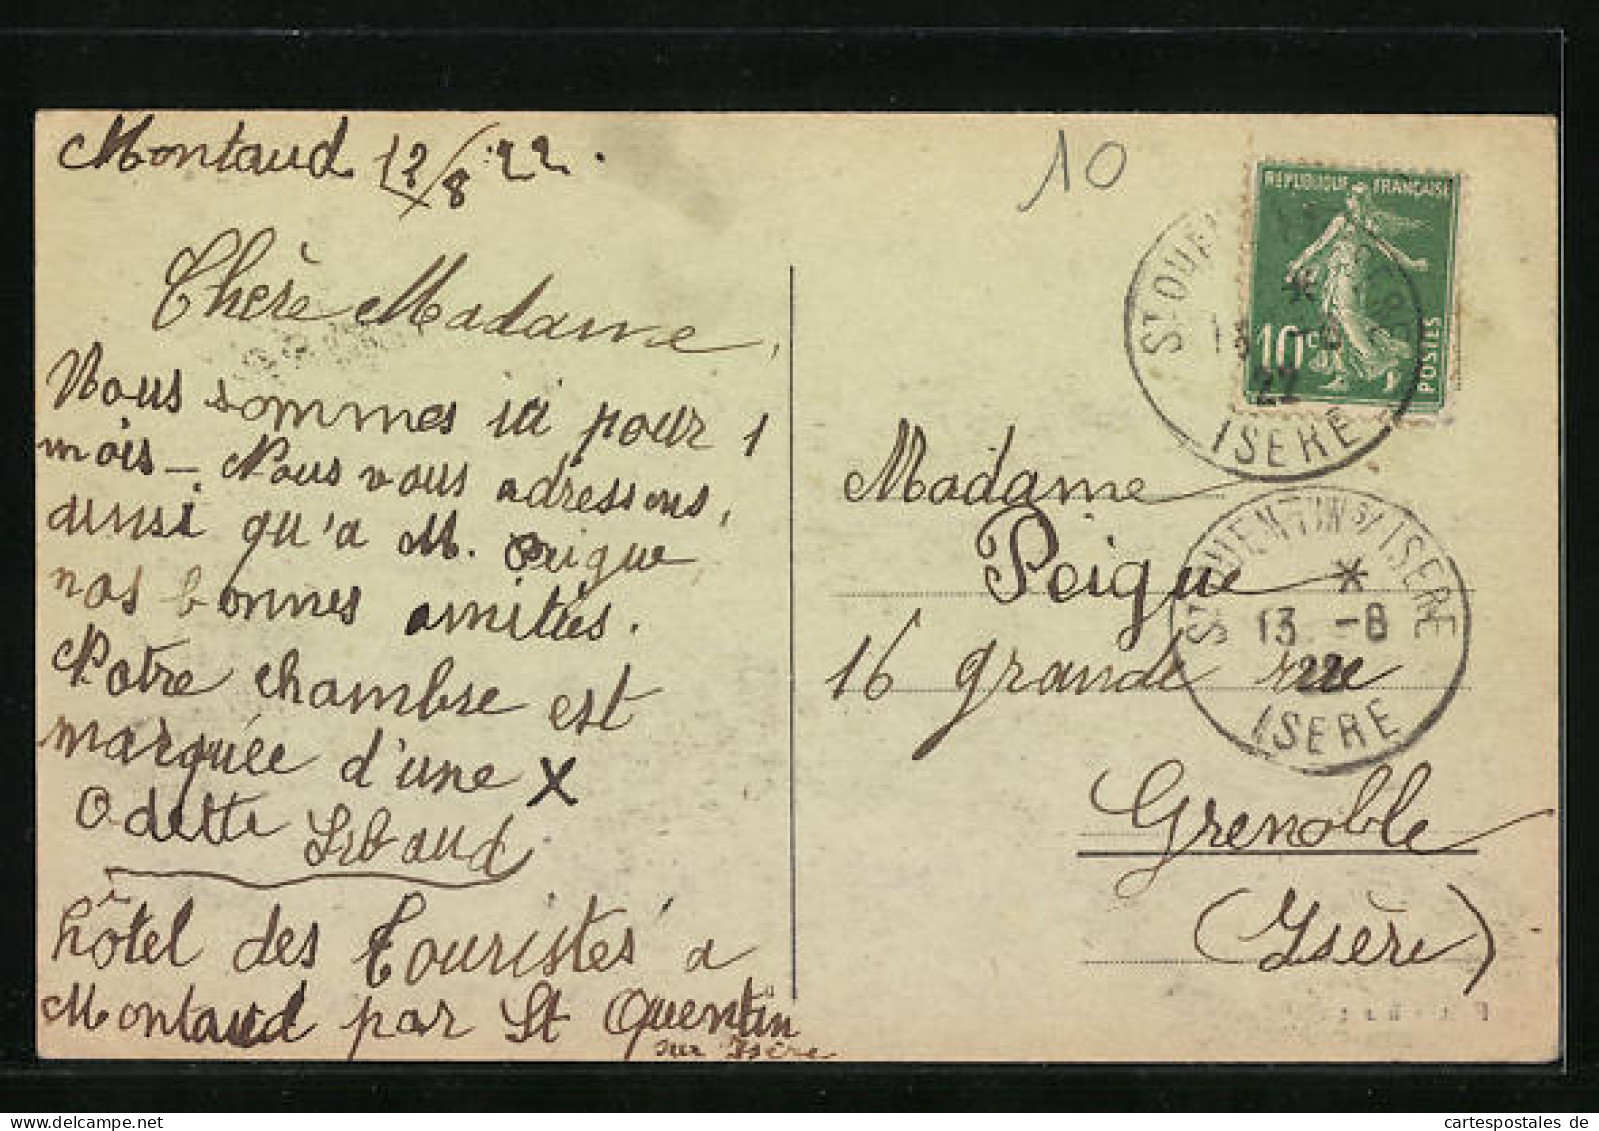 Montaud 12/8 22.
Chère Madame,
Nous sommes ici pour 1
mois - Nous vous adressons,
ainsi qu'a M. Peigue
nos bonnes amitiés.
Notre chambre est
marquée d'une X
Odette
hôtel des Touristes a
Montaud par St Quentin
sur Isère
10
REPUBLIQUE FRANÇAISE
10c
POSTES
22
ISERE
Madame
Peigue
16 grande rue
Grenoble
(Isère)
ST QUENTIN S/ ISERE
*
13 -8
22
ISERE
cartespostales.de